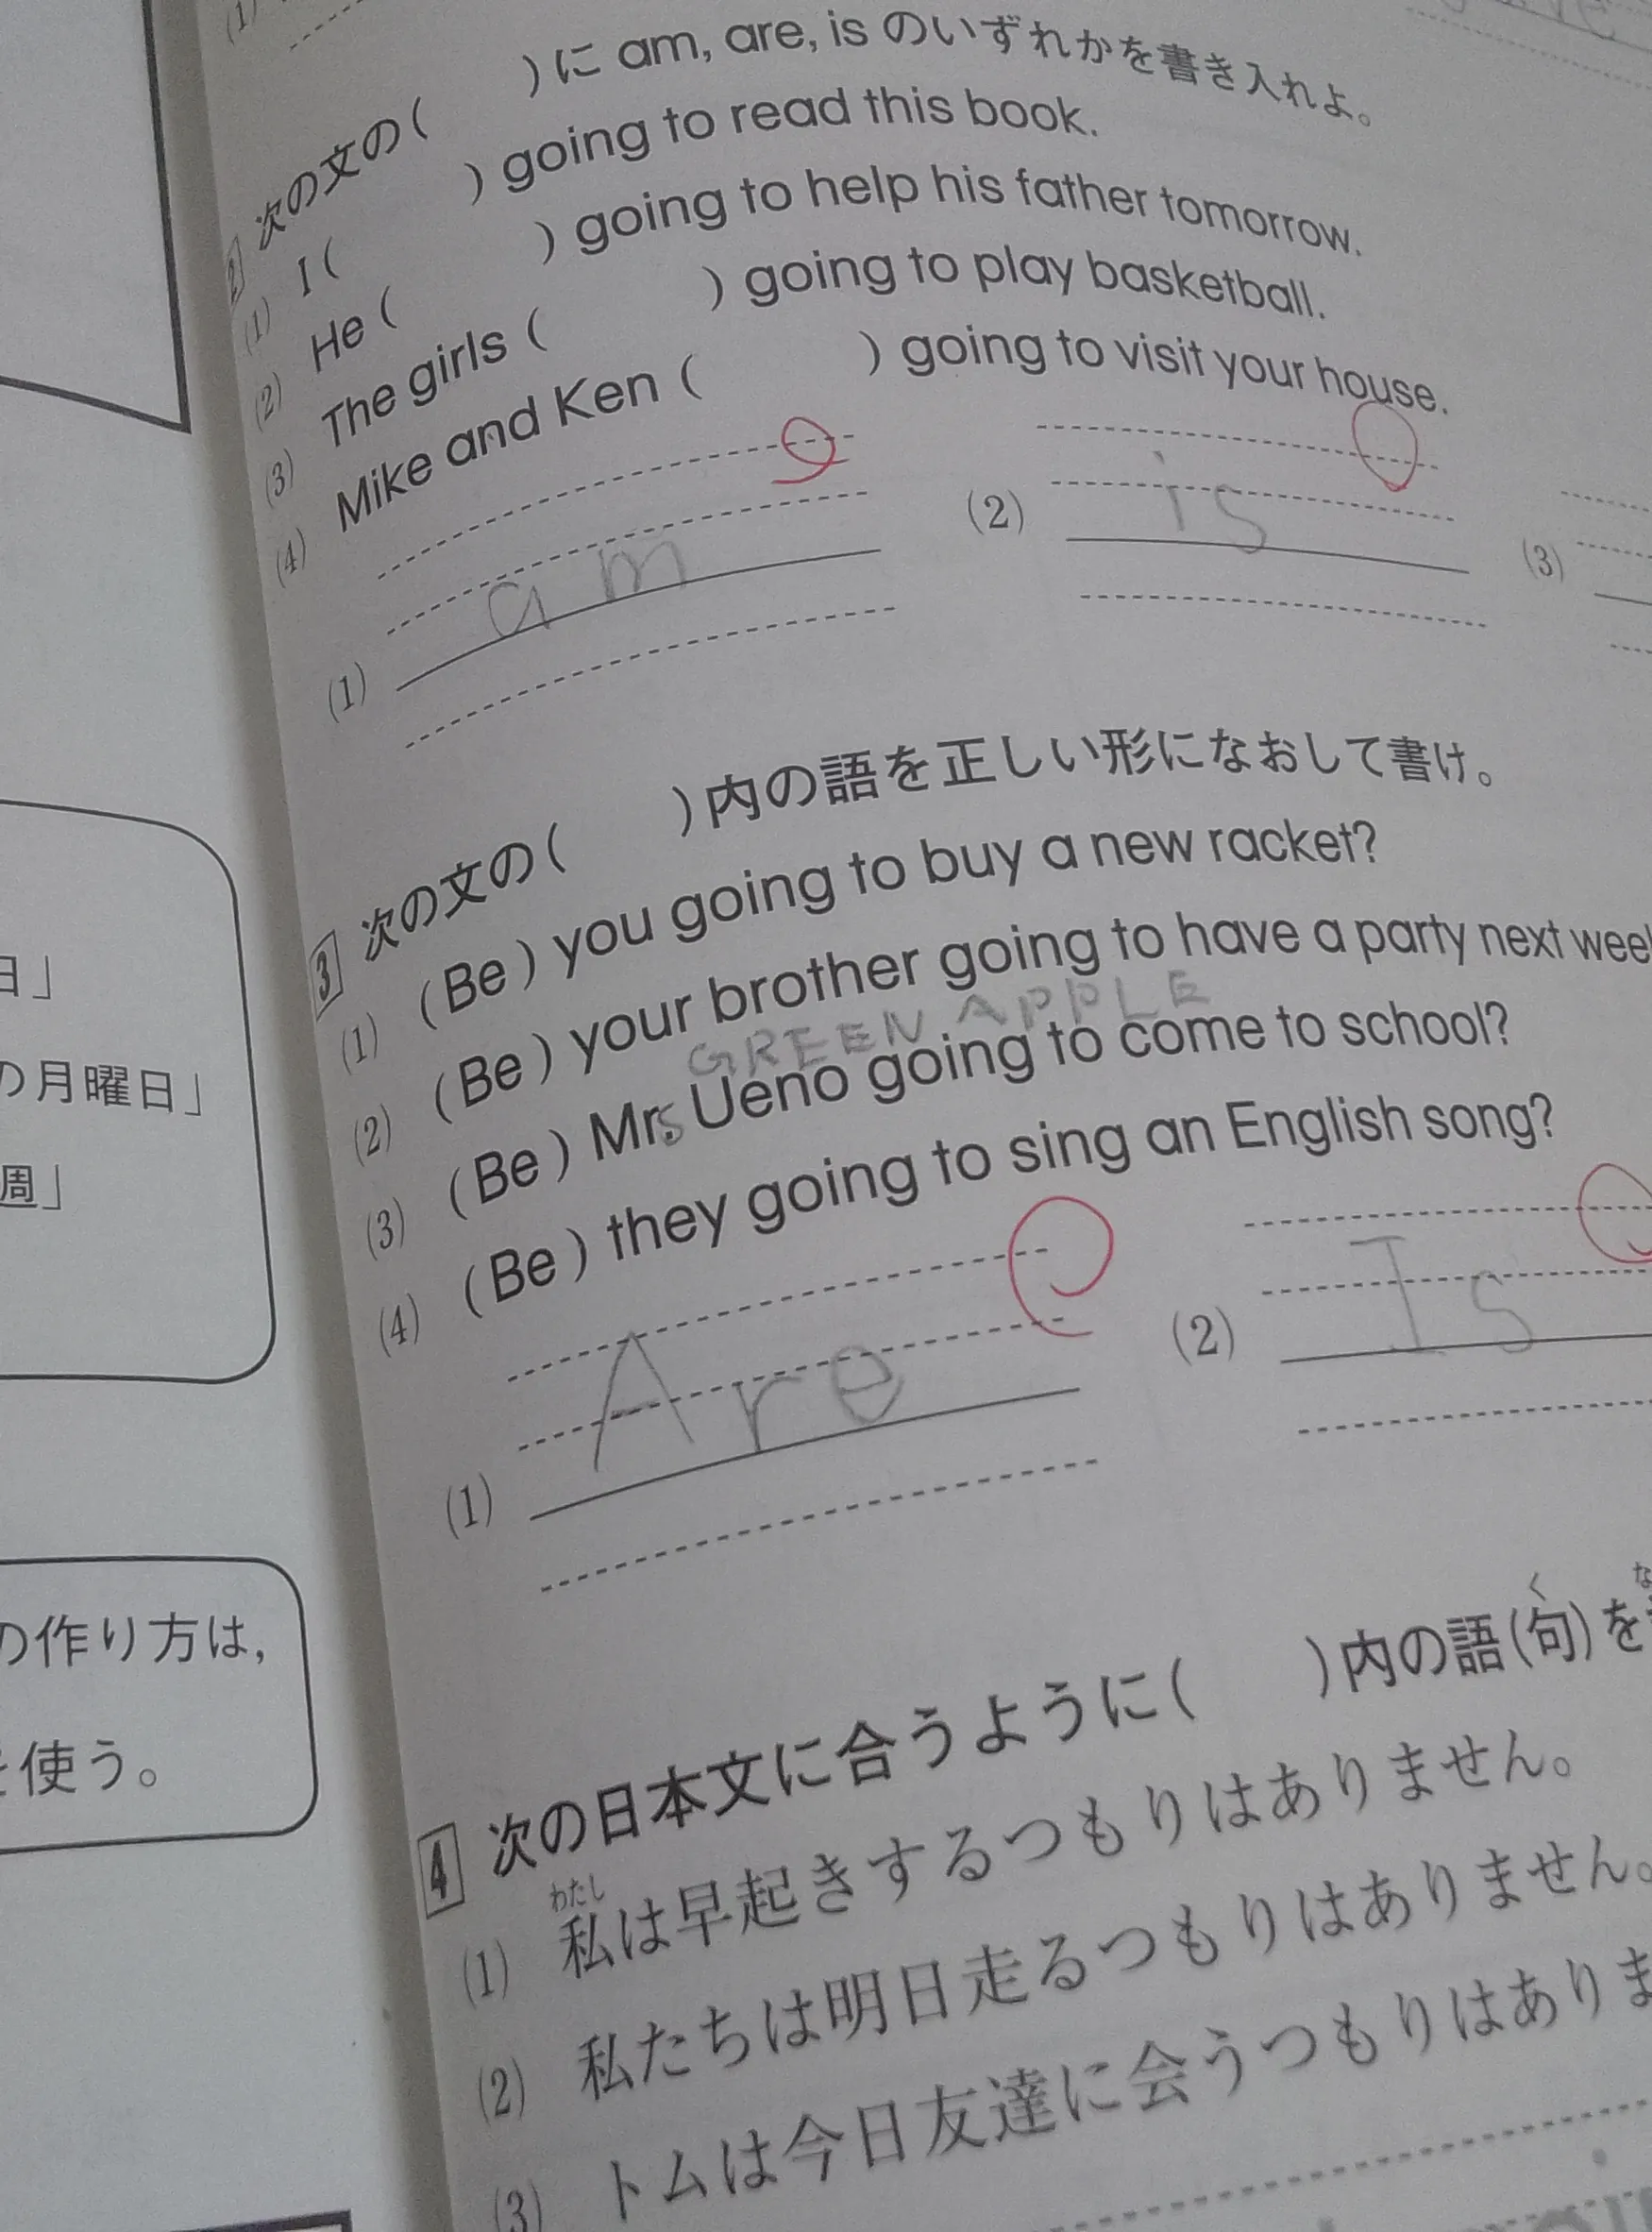 (1)
2 次の文の(　　)に am, are, is のいずれかを書き入れよ。
(1) I (　　) going to read this book.
(2) He (　　) going to help his father tomorrow.
(3) The girls (　　) going to play basketball.
(4) Mike and Ken (　　) going to visit your house.
(1) am (2) is (3)
3 次の文の(　　)内の語を正しい形になおして書け。
(1) (Be) you going to buy a new racket?
(2) (Be) your brother going to have a party next
GREEN APPLE
(3) (Be) Mrs. Ueno going to come to school?
(4) (Be) they going to sing an English song?
(1) Are (2) Is
4 次の日本文に合うように(　　)内の語(句)を
く
わたし
(1) 私は早起きするつもりはありません。
(2) 私たちは明日走るつもりはありません。
(3) トムは今日友達に会うつもりはありま
日」
の月曜日」
週」
の作り方は,
使う。